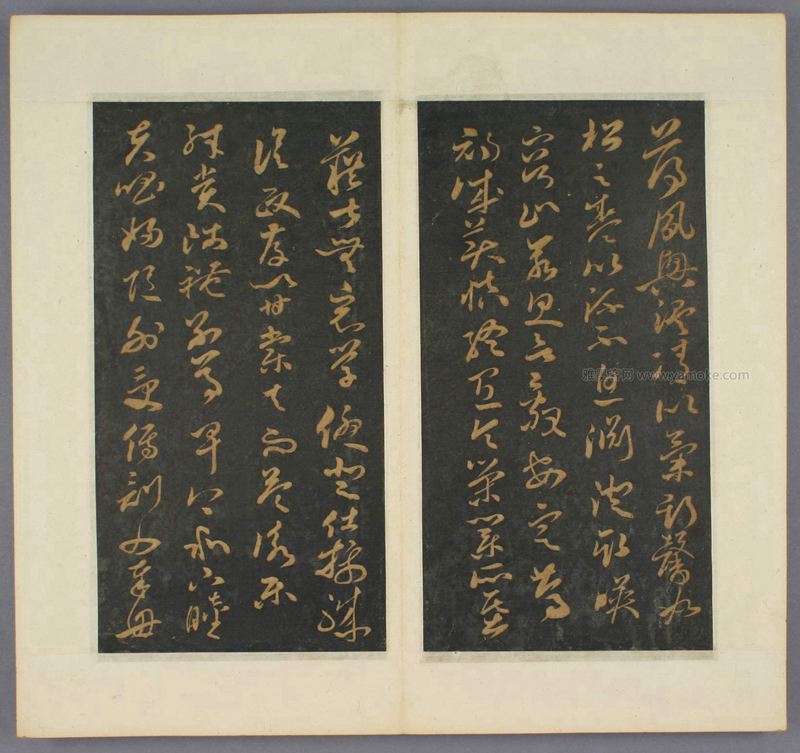 薄夙興溫凊似蘭斯馨如
松之盛川流不息淵澄取暎
容止若思言辭安定篤
初誠美慎終宜令榮業所基
藉甚無竟學優登仕攝職
從政存以甘棠去而益詠樂
殊貴賤禮別尊卑上和下睦
夫唱婦隨外受傅訓入奉母
雅墨客网 www.yamoke.com